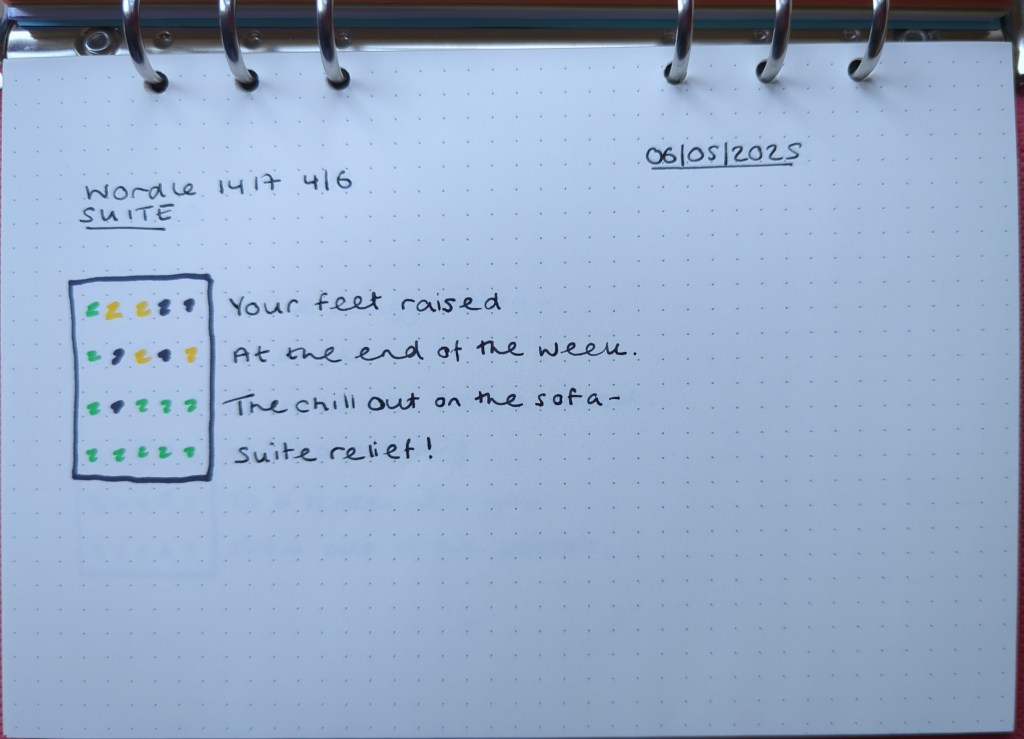 06/05/2025
Wordle 1417 4/6
SUITE
Your feet raised
At the end of the week.
The chill out on the sofa-
Suite relief!